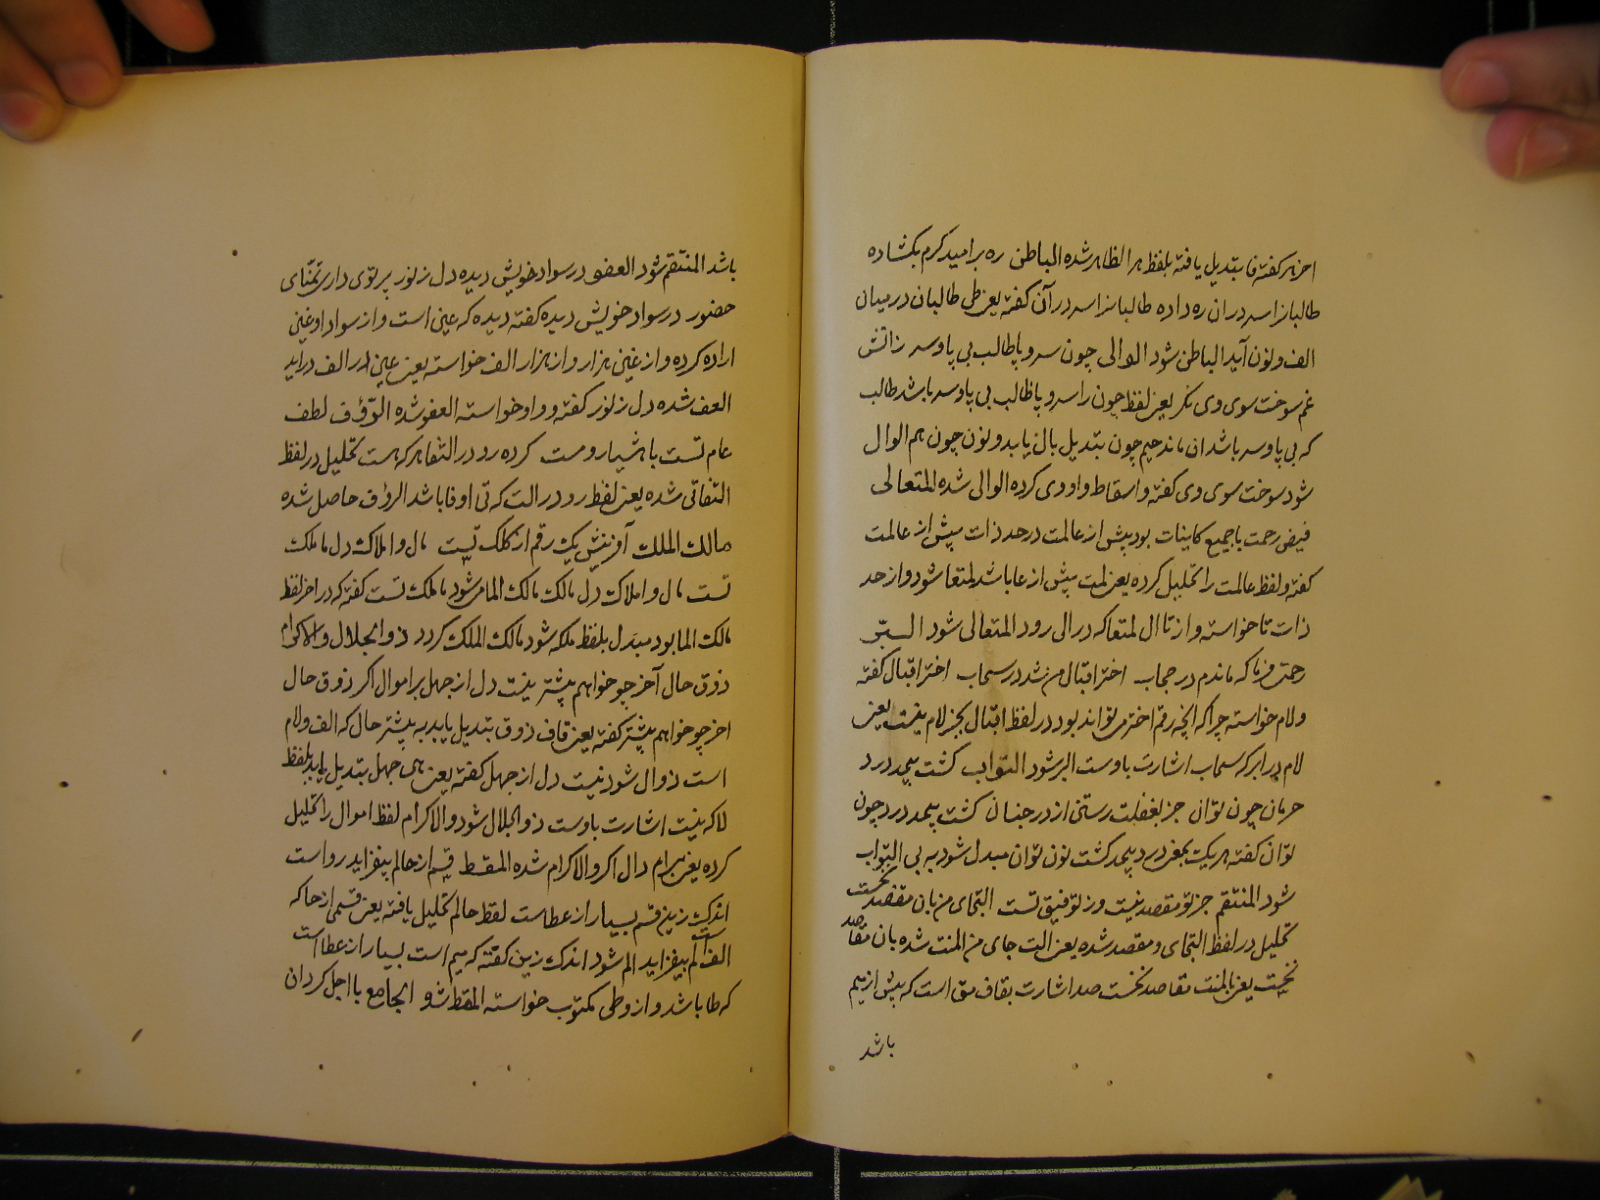 اخر هر کفته فا بتبدیل یافته بلفظ هر الظاهر شده الباطن ره بر امید کرم بکشاده
طالبانرا سر در ان ره داده طالبانرا سر در آن کفته یعنی طی طالبان در میان
الف و نون آید الباطن شود الوالی چون سر و پا طالب بی پا و سر ز اتش
غم سوخت سوی وی نکر یعنی لفظ چون را سر و پا طالب بی پا و سر باشد طالب
که بی پا و سر باشد ان ماند جیم چون بتبدیل بال یابد و نون چون هم الوال
شود سوخت سوی وی کفته و اسقاط واو وی کرده الوالی شده المتعالی
فیض رحمت با جمیع کاینات بود پیش از عالمت در حد ذات پیش از عالمت
کفته و لفظ عالمت را تحلیل کرده یعنی لمت پیش از عا باشد لمتعا شود و از حد
ذات تا خواسته و از تا ال لمتعا که در الی رود المتعالی شود البر
رحمتی فرما که ماندم در حجاب اختر اقبال من شد در سحاب اختر اقبال کفته
و لام خواسته چرا که انچه رقم اختر می تواند بود در لفظ اقبال بجز لام نیست یعنی
لام در ابر که سحاب اشارت باوست البر شود التواب کشت بیحد درد
حرمان چون توان جز بغفلت رستن از درد جنان کشت بیحد درد چون
توان کفته هر یک بمغز درد بیحد کشت نون توان مبدل شود به بی التواب
شود المنتقم جز تو مقصد نیست وز توفیق تست التجای من بان مقصد نخست
تحلیل در لفظ التجای و مقصد شده یعنی الت جای من المنت شده بان مقاصد
نخست یعنی بالمنت مقاصد نخست صد اشارت بقاف مق است که پیش از میم
باشد
باشد المنتقم شود العفو در سواد خویش دیده دل ز نور پرتوی داری تمنای
حضور در سواد خویش دیده کفته دیده که عین است و از سواد او غین
اراده کرده و از غین هزار و از هزار الف خواسته یعنی عین در الف دراید
العف شده دل ز نور کفته و واو خواسته العفو شده الرؤف لطف
عام تست با هشیار و مست کرده رو در التفا هر که هست تحلیل در لفظ
التفاتی شده یعنی لفظ رو در الت که تی او فا باشد الرؤف حاصل شده
مالک الملک آفرینش یک رقم از کلک تست مال و املاک دل ما ملک
تست مال و املاک دل مالک مالک الما می شود ما ملک تست کفته که در اخر لفظ
مالک الما بود مبدل بلفظ ملکه شود مالک الملک کردد ذوالجلال والاکرام
ذوق حال آخر چو خواهم پیشتر نیست دل از جهل بر اموال اکر ذوق حال
اخر چو خواهم پیشتر کفته یعنی قاف ذوق بتبدیل یابد به پیشتر حال که الف و لام
است ذوال شود نیست دل از جهل کفته یعنی های جهل بتبدیل یابد بلفظ
لا که نیست اشارت باوست ذوالجلال شود والاکرام لفظ اموال را تحلیل
کرده یعنی برام دال اکر والاکرام شده المقسط قسم از حالم بیفزاید رواست
اندک زین قسم بسیار از عطاست لفظ حالم تحلیل یافته یعنی قسمی از حا که
الف است لم بیفزاید الم شود اندک زین کفته که میم است بسیار از عطا است
که طا باشد و از وطی مکتوب خواسته المقسط شو الجامع با اجل کردان